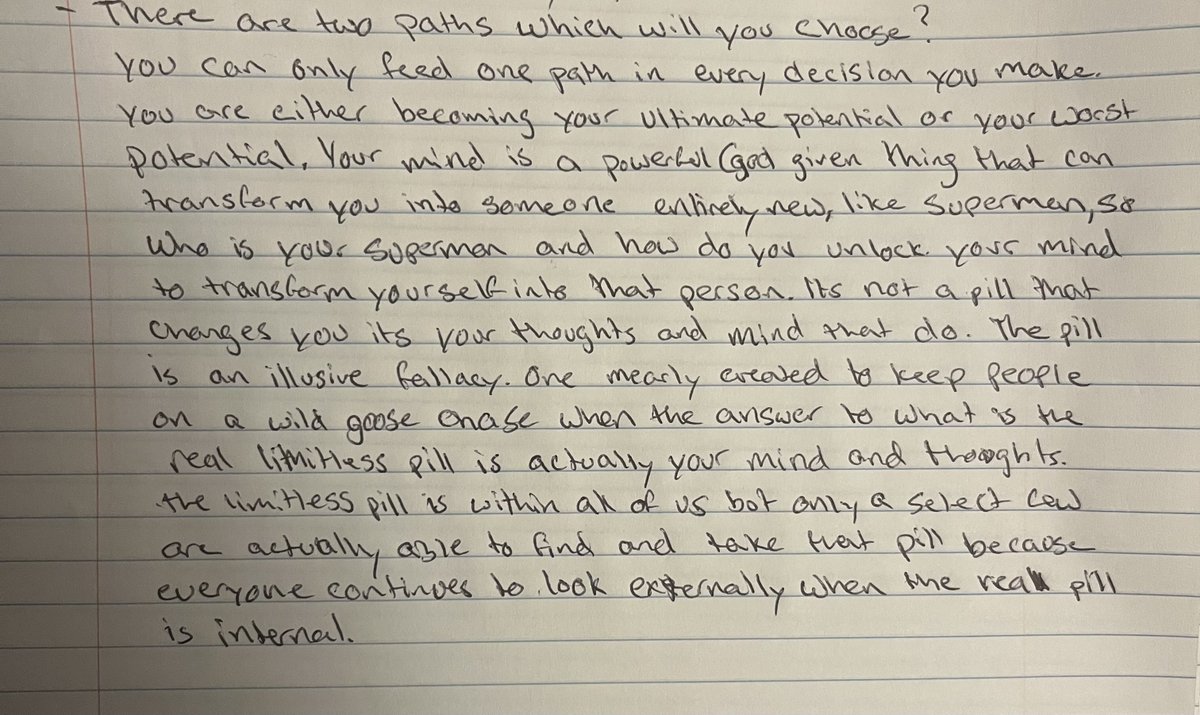 - There are two paths which will you choose?
You can only feed one path in every decision you make.
You are either becoming your ultimate potential or your worst
potential. Your mind is a powerful (god given thing that can
transform you into someone entirely new, like Superman, so
who is your Superman and how do you unlock your mind
to transform yourself into that person. Its not a pill that
changes you its your thoughts and mind that do. The pill
is an illusive fallacy. One mearly created to keep people
on a wild goose chase when the answer to what is the
real limitless pill is actually your mind and thoughts.
the limitless pill is within all of us but only a select few
are actually able to find and take that pill because
everyone continues to look externally when the real pill
is internal.